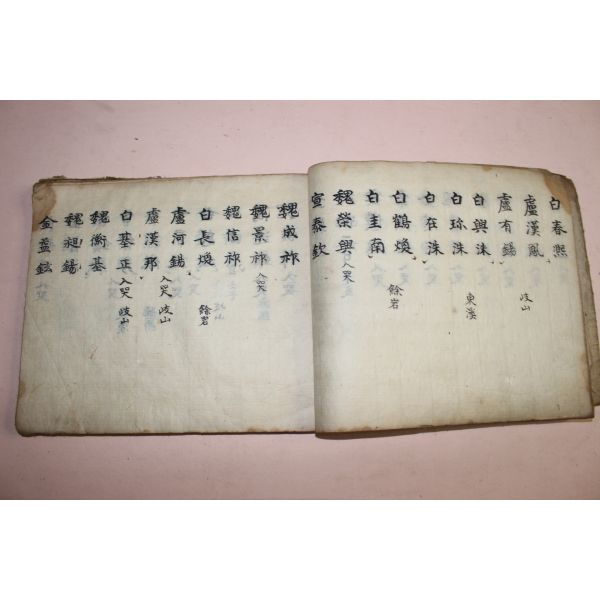 白春熙
盧漢鳳 岐山
盧有錫
白興洙
白珎洙 東溪
白在洙
白鶴煥 餘岩
白圭南
魏榮興 入哭
宣泰欽
魏成祚
魏景祚 入哭
魏信祚
白長煥 餘岩
盧河錫 入哭 岐山
盧漢邦
白基正 入哭 岐山
魏衡基
魏昶錫
金益鉉